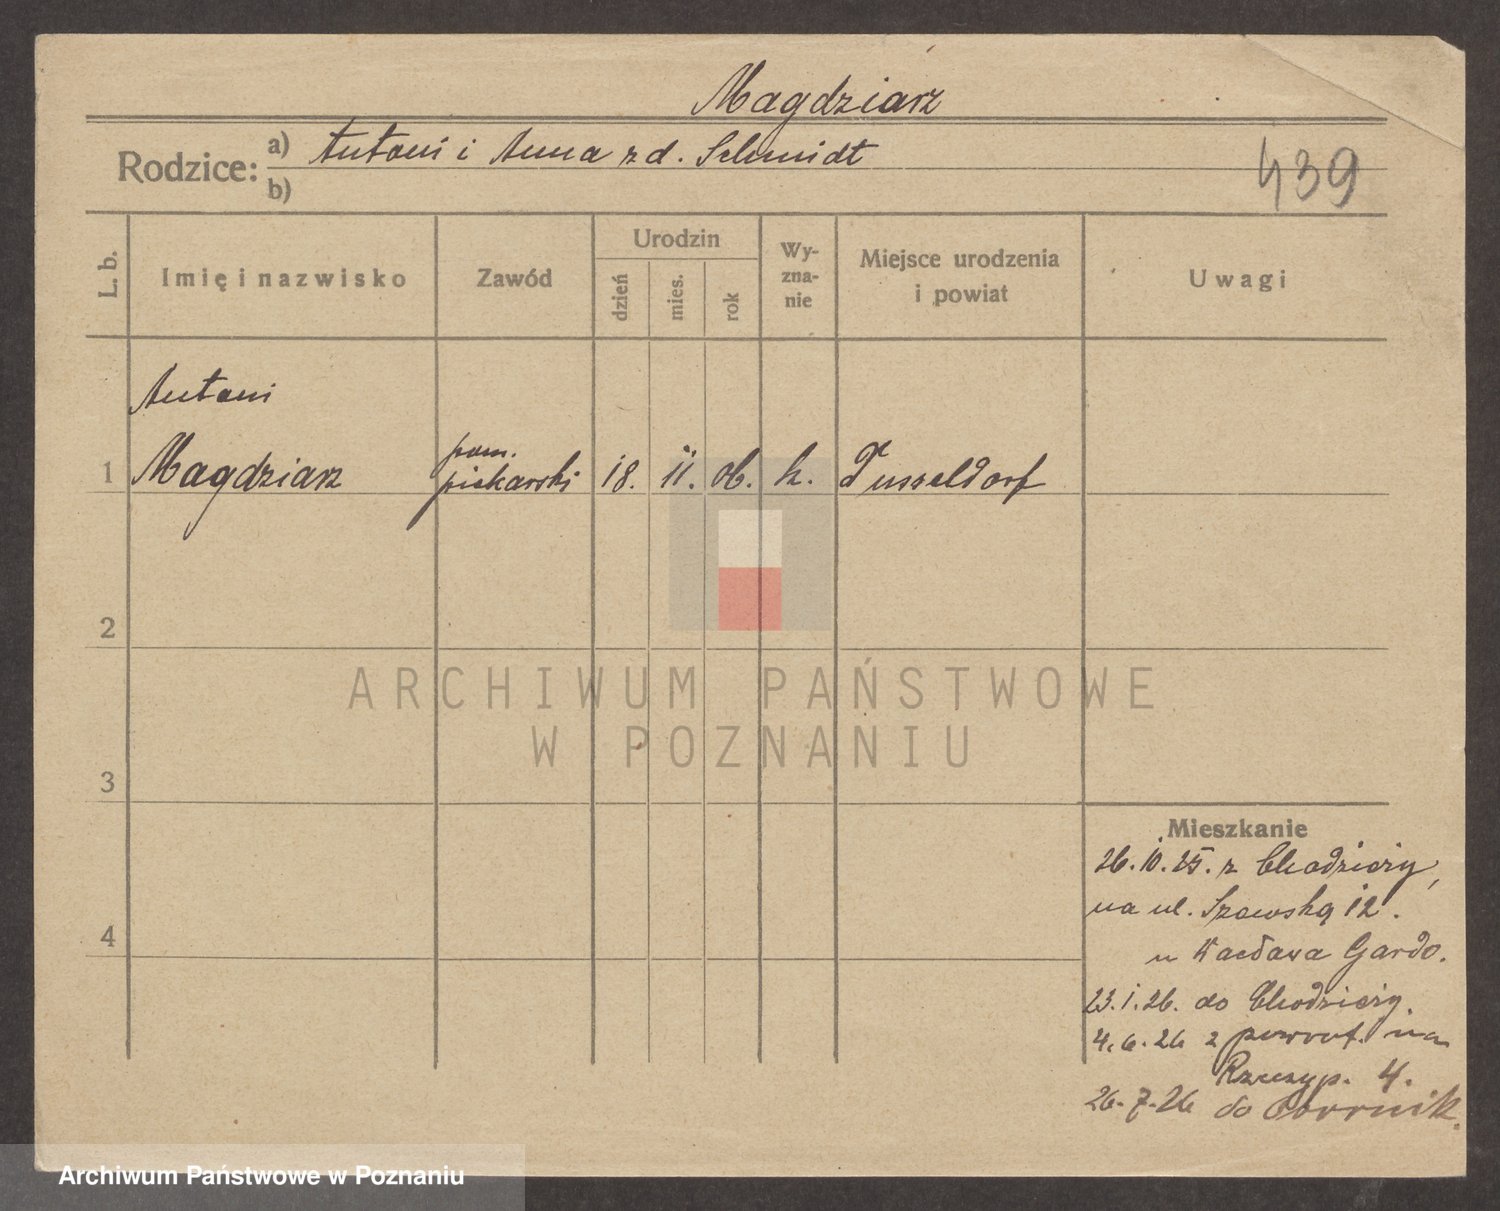 Magdziarz
Rodzice: a) Antoni i Anna z d. Schmidt
b)
439
L. b.
Imię i nazwisko
Zawód
Urodzin
dzień
mies.
rok
Wy-
zna-
nie
Miejsce urodzenia
i powiat
Uwagi
Antoni
1 Magdziarz
pom.
piekarski
18. 11. 06. k. Dusseldorf
2
3
4
ARCHIWUM PAŃSTWOWE
W POZNANIU
Mieszkanie
26.10.25. z Chodzieży,
na ul. Szewską 12.
u Wacława Gardo.
23.1.26. do Chodzieży.
4.6.26 z powrot. na
Rzeczyp. 4.
26.7.26 do
Archiwum Państwowe w Poznaniu